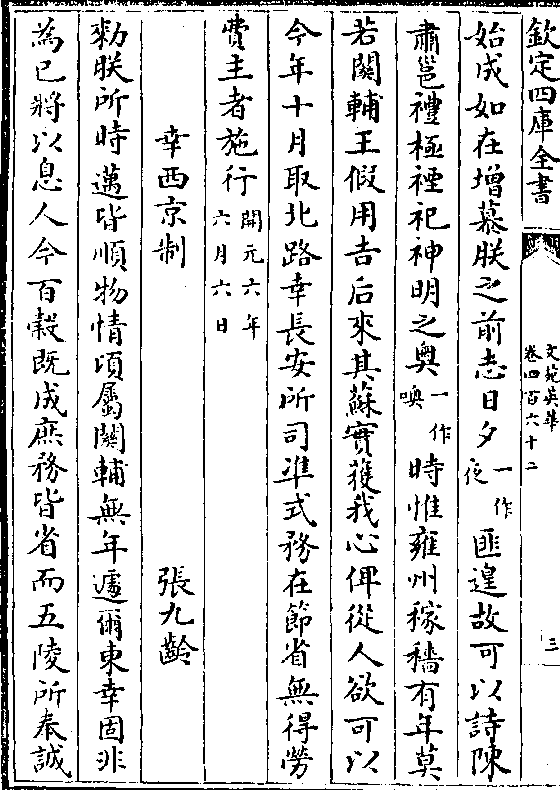 欽定四庫全書
文苑英華
卷四百六十二
三
始成如在增慕朕之前志日夕一作夜匪遑故可以詩陳
肅邕禮極禋祀神明之奥一作噢時惟雍州稼穡有年莫
若關輔王假用吉后來其蘇實獲我心俾從人欲可以
今年十月取北路幸長安所司准式務在節省無得勞
費主者施行開元六年六月六日
幸西京制 張九齡
勑朕所時邁皆順物情頃屬關輔無年遽爾東幸固非
為已將以息人今百穀既成庶務皆省而五陵所奉誠